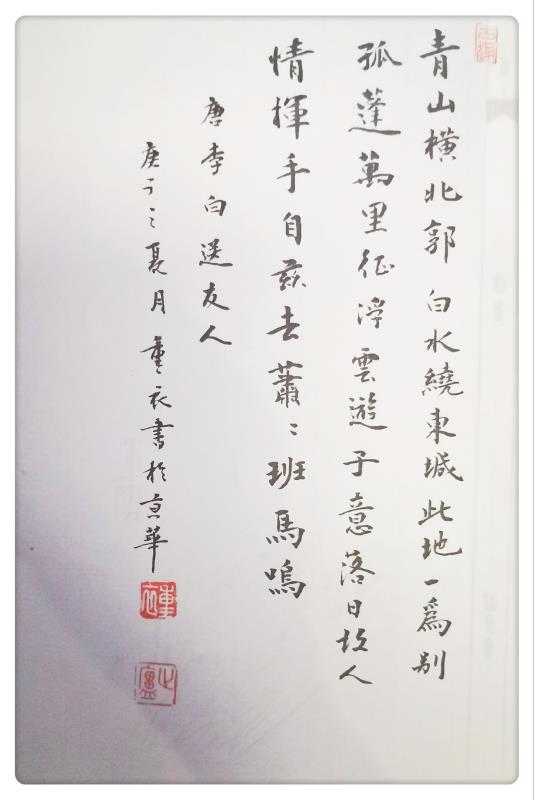 青山橫北郭白水繞東城此地一爲别
孤蓬萬里征浮雲遊子意落日故人
情揮手自茲去蕭〻班馬鳴
唐李白送友人
庚子之夏月董衣書於京華